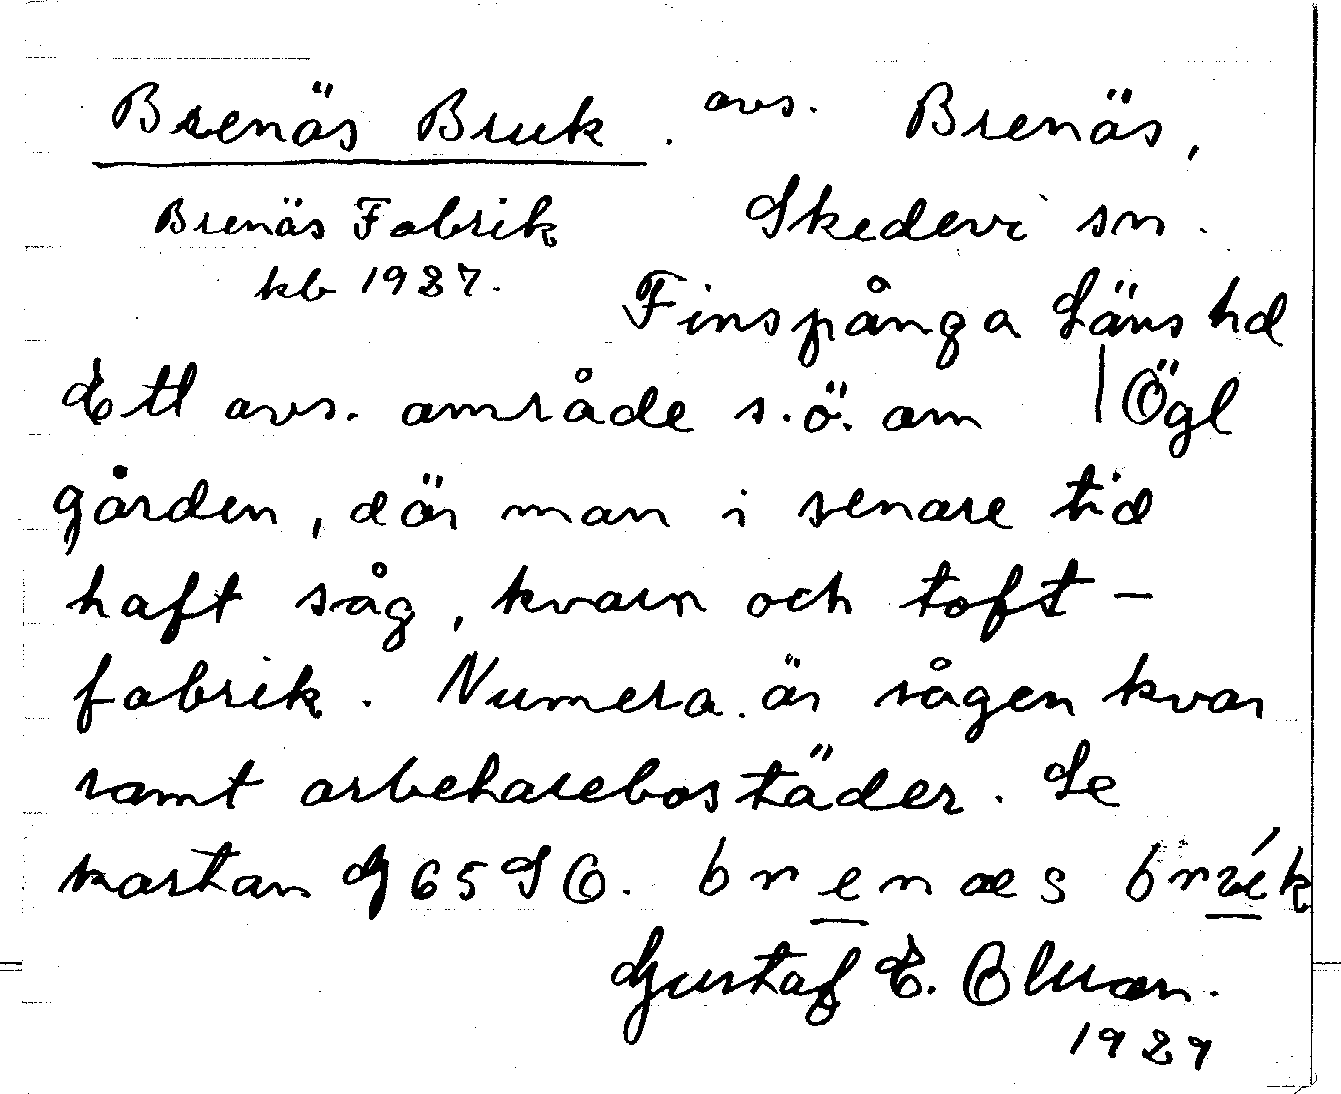 Brenäs Bruk. avs. Brenäs,
Brenäs Fabrik
kb 1927.
Skedevi sn.
Finspånga Läns hd
Ett avs. område s.ö. om | Ögl
gården, där man i senare tid
haft såg, kvarn och toft-
fabrik. Numera är sågen kvar
samt arbetarebostäder. Se
kartan G 65 SO. brenæs
Gustaf E. Bluan.
1927